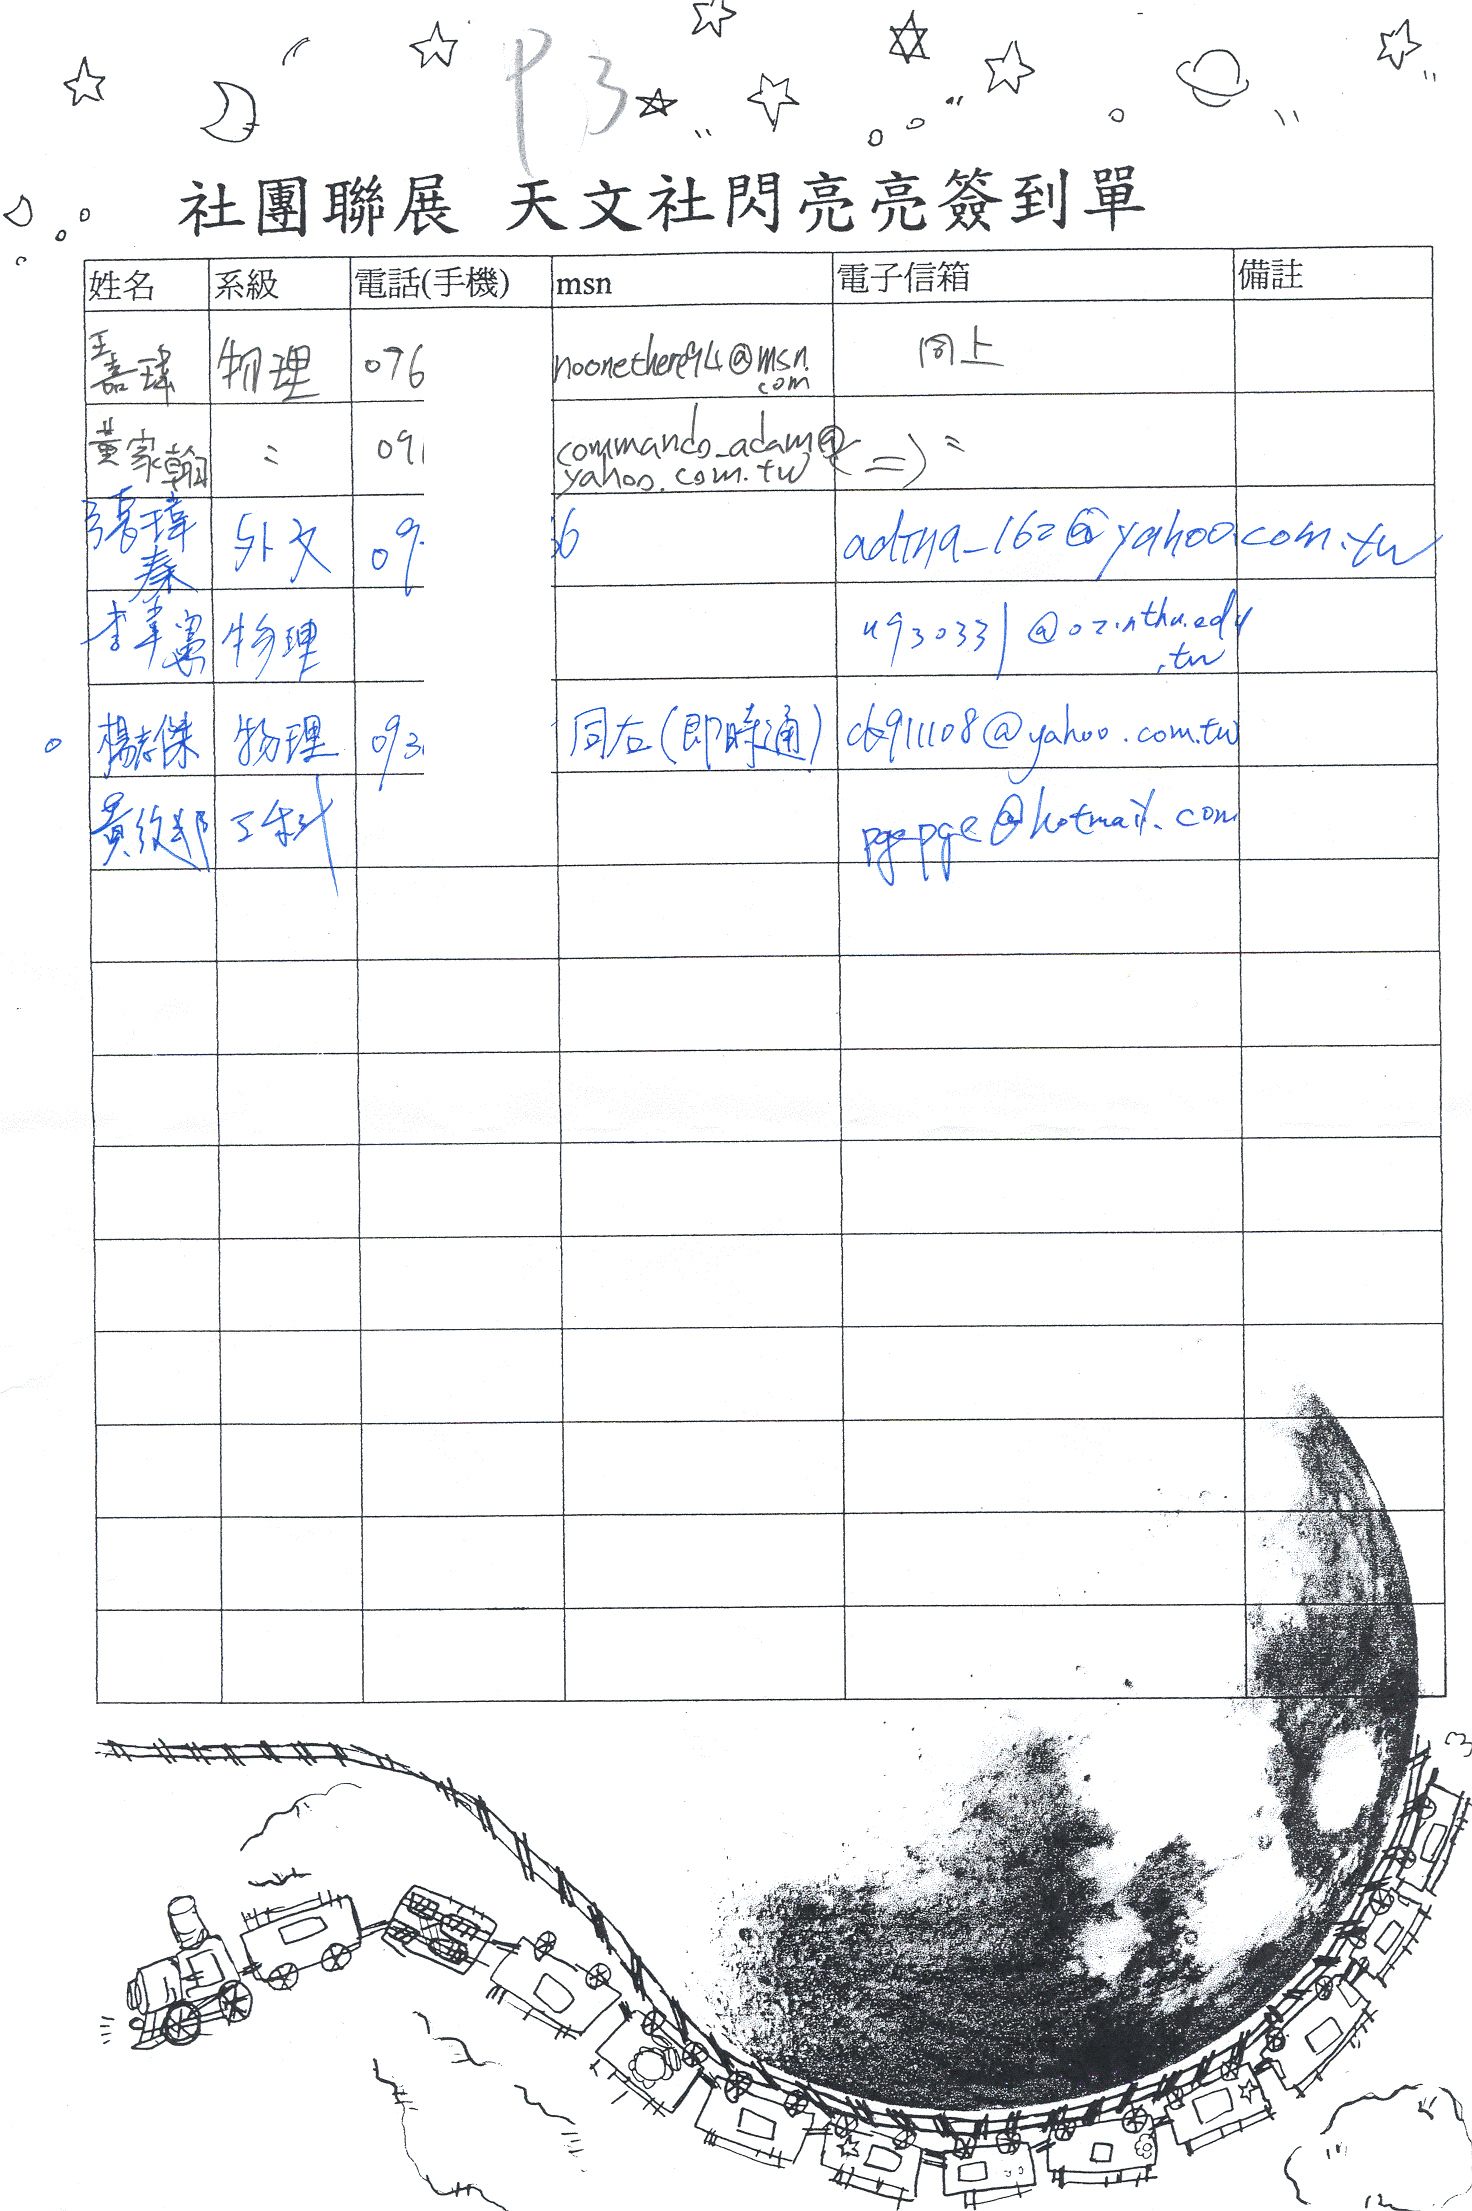 P3
社團聯展 天文社閃亮亮簽到單
姓名 系級 電話(手機) msn 電子信箱 備註
王嘉瑋 物理 076 noonethere94@msn.com 同上
黃家翰 〃 091 commando_adam@yahoo.com.tw (=) =
張瑋秦 外文 09 36 adtna_162@yahoo.com.tw
李 物理 u930331@oz.nthu.edu.tw
楊志傑 物理 093 同右(即時通) ck911108@yahoo.com.tw
黃 工科 pgepge@hotmail.com